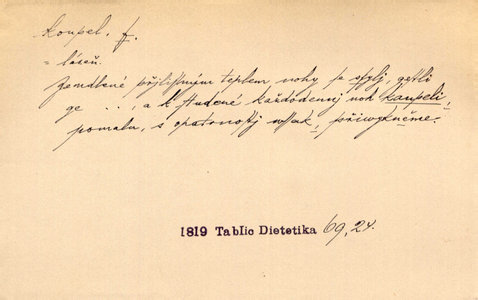 koupel. f.
= lázeň.
Zendlené přjlissným teplem nohy se sylj, gestli
ge . . , a k studené každodennj noh kaupeli,
pomalu, s opatrnostj wssak, přiwykněme.
1819 Tablic Dietetika 69, 24.